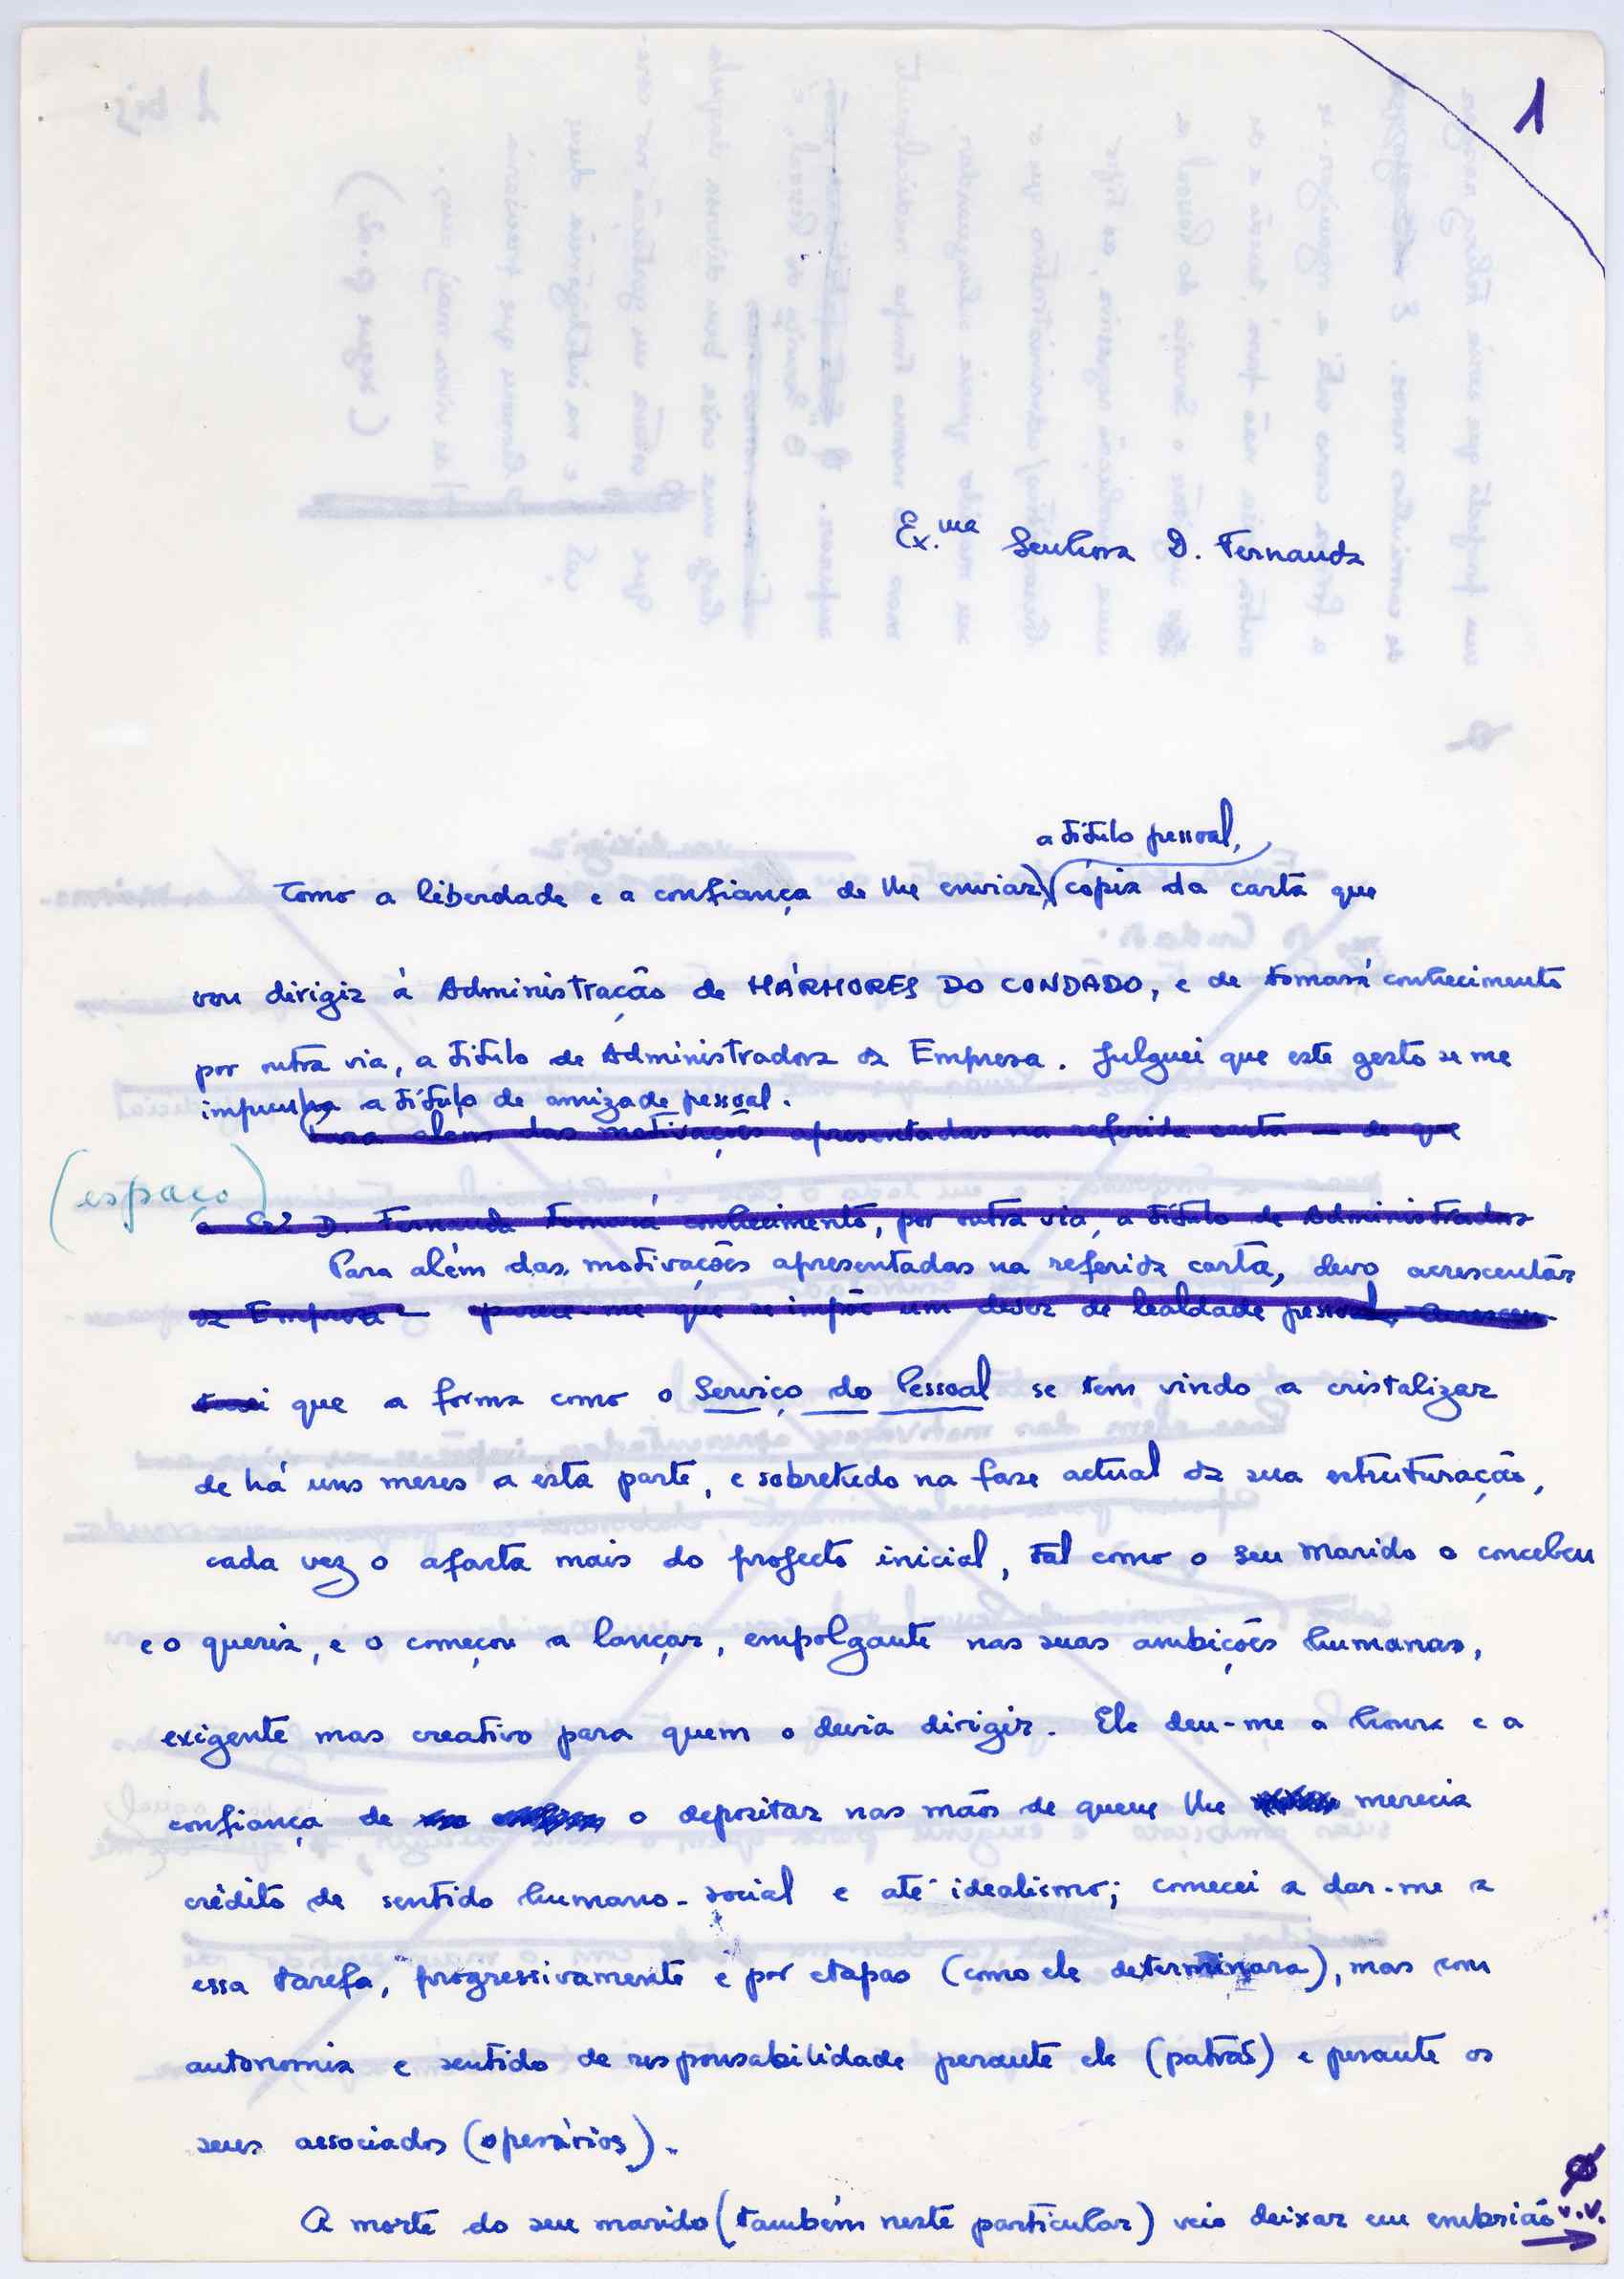 1
Ex.ma Senhora D. Fernanda
a título pessoal,
Tomo a liberdade e a confiança de lhe enviar, cópia da carta que
vou dirigir à Administração de MÁRMORES DO CONDADO, e de tomará conhecimento
por outra via, a título de Administradora da Empresa. Julguei que este gesto se me
impunha a título de amizade pessoal.
Para alem das motivações apresentadas na referida carta — de que
(espaço)
a Srª D. Fernanda tomará conhecimento, por outra via, a título de Administradora
Para além das motivações apresentadas na referida carta, devo acrescentar
da Empresa — parece-me que se impõe um dever de lealdade pessoal, acrescen-
tarei que a forma como o Serviço do Pessoal se tem vindo a cristalizar
de há uns meses a esta parte, e sobretudo na fase actual da sua estruturação,
cada vez o afasta mais do projecto inicial, tal como o seu marido o concebeu
e o queria, e o começou a lançar, empolgante nas suas ambições humanas,
exigente mas creativo para quem o devia dirigir. Ele deu-me a honra e a
confiança de o depositar nas mãos de quem lhe merecia
crédito de sentido humano-social e até idealismo; comecei a dar-me a
essa tarefa, progressivamente e por etapas (como ele determinara), mas com
autonomia e sentido de responsabilidade perante ele (patrão) e perante os
seus associados (operários).
A morte do seu marido (também neste particular) veio deixar em embrião v.v.